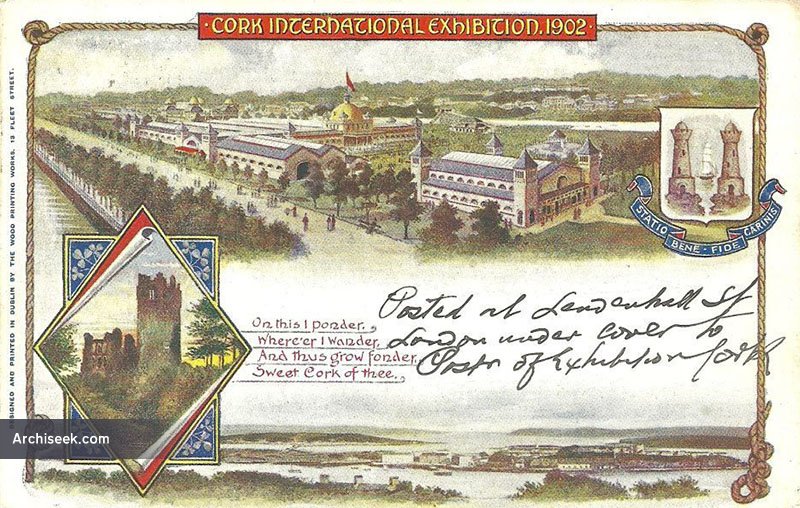 · CORK INTERNATIONAL EXHIBITION. 1902 ·
DESIGNED AND PRINTED IN DUBLIN BY THE WOOD PRINTING WORKS, 13 FLEET STREET.
STATIO BENE · FIDE CARINIS
On this I ponder,
Where'er I Wander,
And thus grow fonder,
Sweet Cork of thee.
Posted at Leadenhall St
London under cover to
Postr of Exhibition Cork
Archiseek.com